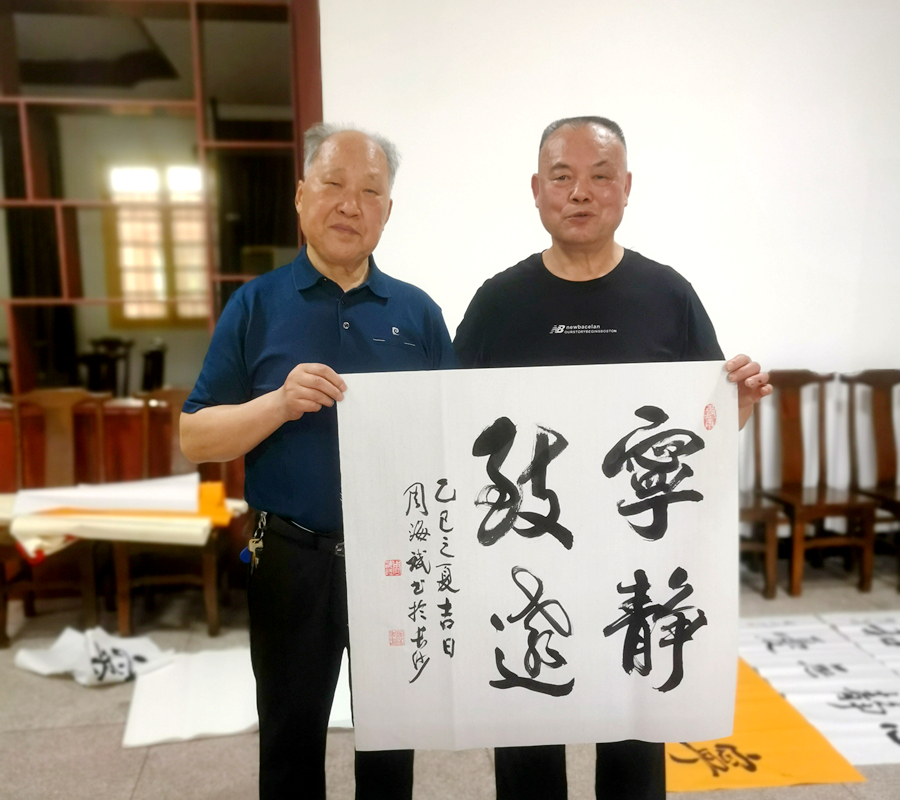 寧静
致遠
乙巳之夏吉日
周海斌书於长沙
NB newbacelan